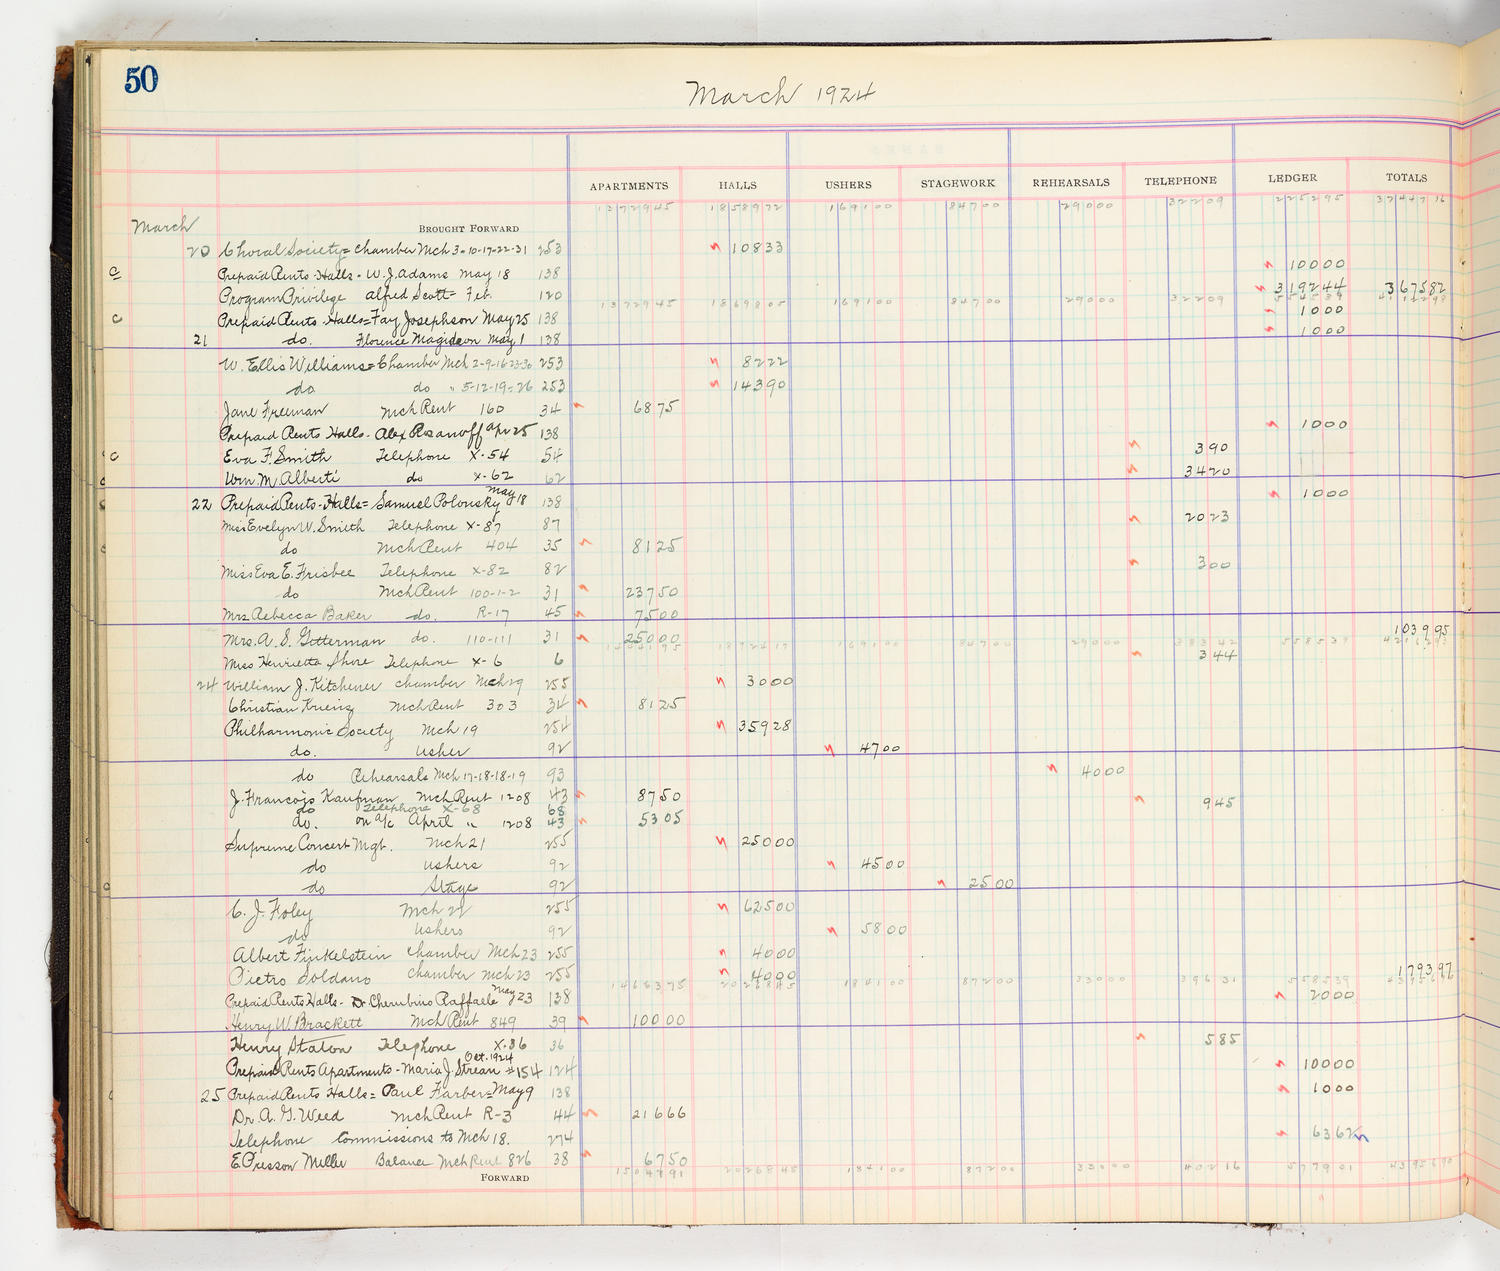 50
March 1924
APARTMENTS HALLS USHERS STAGEWORK REHEARSALS TELEPHONE LEDGER TOTALS
1372945 1858972 169100 84700 29000 32209 225295
March BROUGHT FORWARD
20 Choral Society = Chamber Mch 3-10-17-22-31 253 10833
Prepaid Rents Halls - W. J. Adams May 18 138 10000
Program Privilege Alfred Scott - Feb. 120 319244 367582
1372945 1869805 169100 84700 29000 32209 554539
Prepaid Rents Halls = Fay Josephson May 25 138 1000
21 do. Florence Magideon May 1 138 1000
W. Ellis Williams = Chamber Mch 2-9-16-23-30 253 8222
do do " 5-12-19-26 253 14390
Jane Freeman Mch Rent 160 34 6875
Prepaid Rents Halls - Alex Rosanoff Apr 25 138 1000
Eva F. Smith Telephone X-54 54 390
Wm M. Alberti do X-62 62 3420
22 Prepaid Rents - Halls = Samuel Polonsky May 18 138 1000
Miss Evelyn W. Smith Telephone X-87 87 2023
do Mch Rent 404 35 8125
Miss Eva E. Frisbee Telephone X-82 82 300
do Mch Rent 100-1-2 31 23750
Mrs. Rebecca Baker do. R-17 45 7500
Mrs. A. S. Gitterman do. 110-111 31 25000 103995
169100 84700 29000 38342 558539
Miss Henrietta Shore Telephone X-6 6 344
24 William J. Kitchener Chamber Mch 29 255 3000
Christian Kriens Mch Rent 303 34 8125
Philharmonic Society Mch 19 254 35928
do. Usher 92 4700
do Rehearsals Mch 17-18-18-19 93 4000
J. Francois Kaufman Mch Rent 1208 43 8750
do Telephone X-68 68 945
do. on a/c April " 1208 43 5305
Supreme Concert Mgt. Mch 21 255 25000
do Ushers 92 4500
do Stage 92 2500
C. J. Foley Mch 22 255 62500
do Ushers 92 5800
Albert Finkelstein Chamber Mch 23 255 4000
Pietro Soldano Chamber Mch 23 255 4000 179397
1468375 2026845 184100 87200 33000 39631 558539
Prepaid Rents Halls - Dr Cherubino Raffaelle May 23 138 2000
Henry W. Brackett Mch Rent 849 39 10000
Henry Staton Telephone X-36 36 585
Prepaid Rents Apartments - Maria J. Strean Oct. 1924 #154 124 10000
25 Prepaid Rents Halls = Paul Farber = May 9 138 1000
Dr. A. G. Weed Mch Rent R-3 44 21666
Telephone Commissions to Mch 18. 274 6362
E Presson Miller Balance Mch Rent 826 38 6750
FORWARD 1504891 2026845 184100 87200 33000 40216 577901 4395690